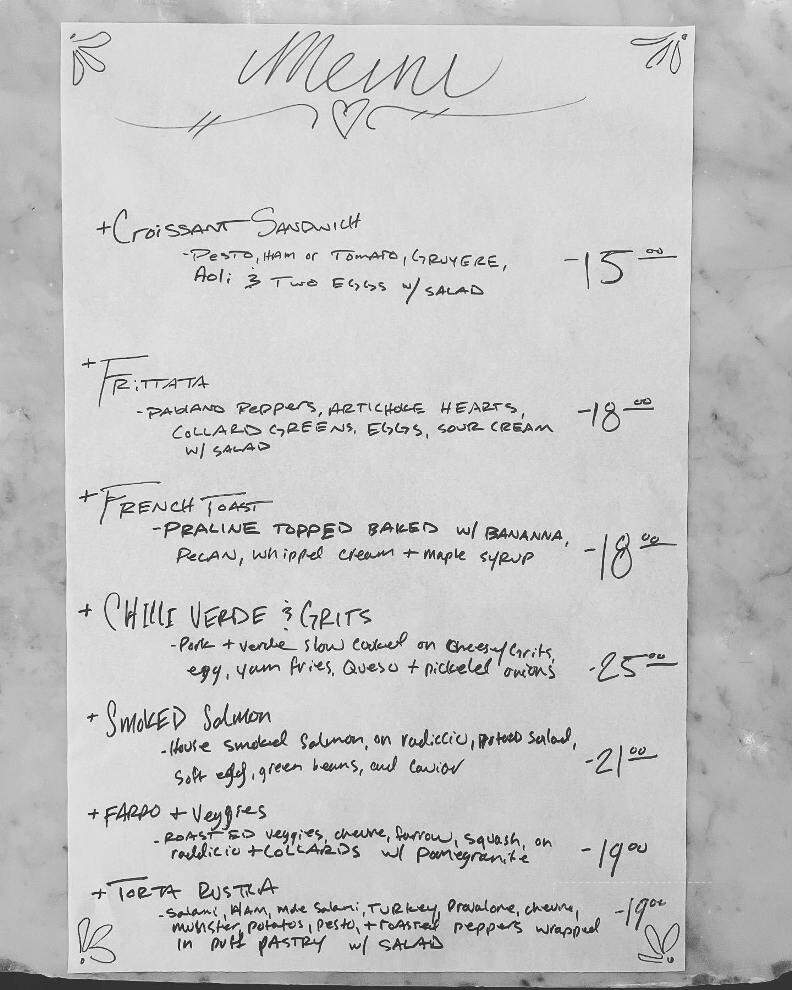 Menu
+ Croissant Sandwich
- Pesto, Ham or Tomato, Gruyere, -15 00
Aoli & Two Eggs w/ Salad
+ Frittata
- Pablano Peppers, Artichoke Hearts, -18 00
Collard Greens, Eggs, Sour Cream
w/ Salad
+ French Toast
- Praline Topped Baked w/ Bananna,
Pecan, whipped cream + maple syrup -18 00
+ Chilli Verde & Grits
- Pork + verde slow cooked on cheesey Grits,
egg, yam fries, Queso + pickeled onions -25 00
+ Smoked Salmon
- House smoked Salmon, on radiccio, potato Salad,
Soft egg, green beans, and Caviar -21 00
+ Farro + Veggies
- Roasted veggies, chevre, farrow, squash, on
raddicio + Collards w/ Pomegranite -19 00
+ Torta Rustica
- Salami, Ham, more Salami, Turkey, Provalone, chevre, -19 00
munster, potatos, pesto, + roasted peppers wrapped
in puff pastry w/ Salad